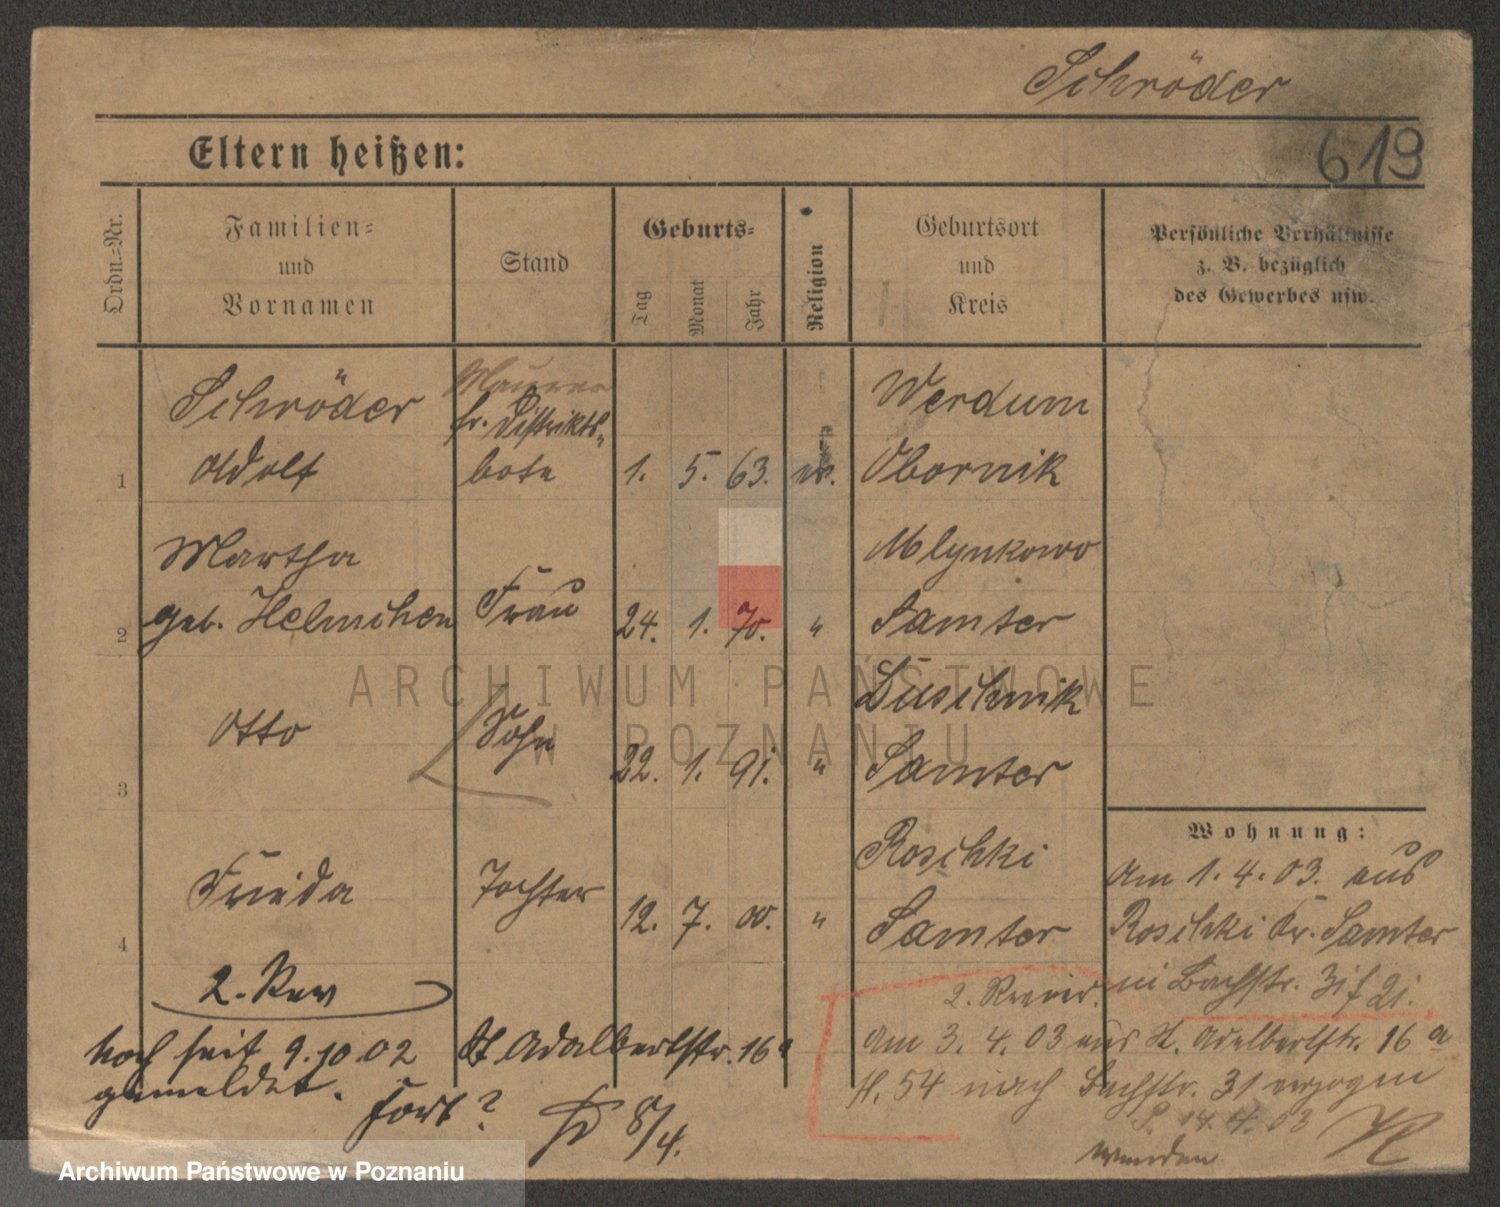 Schröder
619
Eltern heißen:
Ordn.-Nr.
Familien-
und
Vornamen
Stand
Geburts-
Tag
Monat
Jahr
Religion
Geburtsort
und
Kreis
Persönliche Verhältnisse
z. B. bezüglich
des Gewerbes usw.
Schröder
Maurer
fr. Distrikts-
Werdum
1
Adolf
bote
1. 5. 63.
Obornik
Martha
Mlynkowo
2
geb. Helmchen
Frau
24. 1. 70.
"
Samter
Duschnik
Otto
Sohn
3
22. 1. 91.
"
Samter
Roschki
Frieda
Tochter
4
12. 7. 00.
"
Samter
Wohnung:
Am 1.4.03. aus
Roschki Kr. Samter
2. Rev
2. Revier.
noch seit 9.10 02 St Adalbertstr. 16a
gemeldet.
fort? 8/4.
Am 3.4.03 aus St. Adalbertstr. 16a
H. 54 nach Bachstr. 31 verzogen
14.4.03
wenden
ARCHIWUM PAŃSTWOWE
W POZNANIU
Archiwum Państwowe w Poznaniu